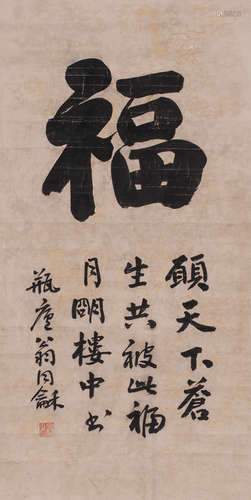 福
願天下蒼
生共被此福
月明樓中書
瓶廬翁同龢